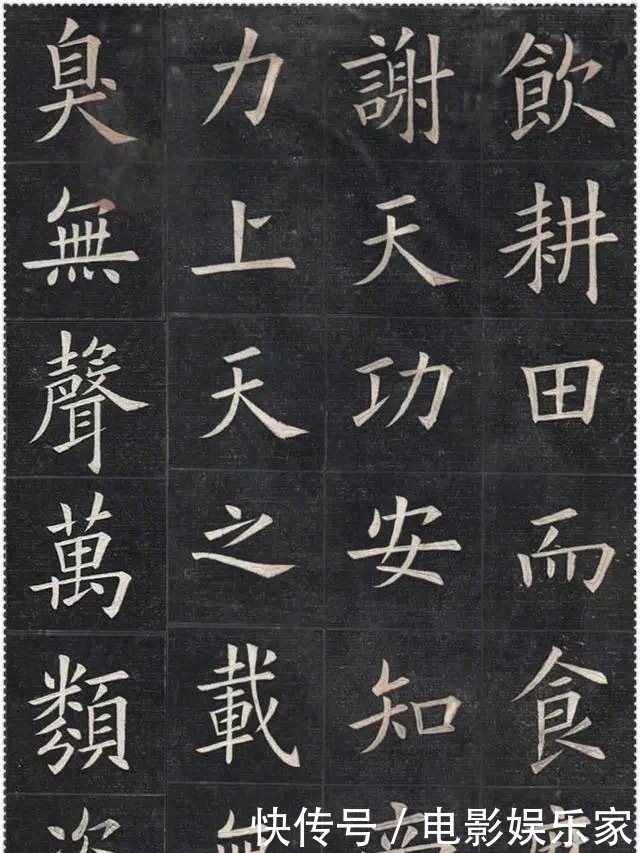 飲耕田而食
謝天功安知
力上天之載無
臭無聲萬類
快传号 / 电影娱乐家